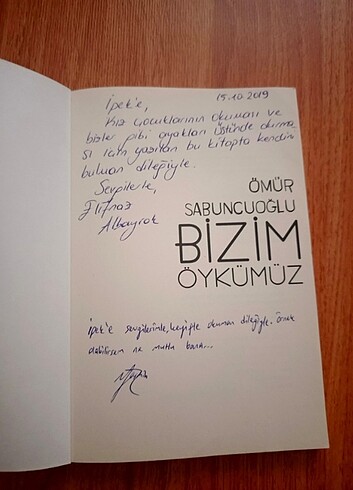 15.10.2019
İpek'e,
Kız çocuklarının okuması ve
bizler gibi ayakları üstünde durma
sı için yazılan bu kitapta kendini
bulman dileğiyle.
Sevgilerle,
Elifnaz
Albayrak
ÖMÜR
SABUNCUOĞLU
BİZİM
ÖYKÜMÜZ
İpek'e sevgilerimle, keyifle okuman dileğiyle. Örnek
olabilirsem ne mutlu bana...